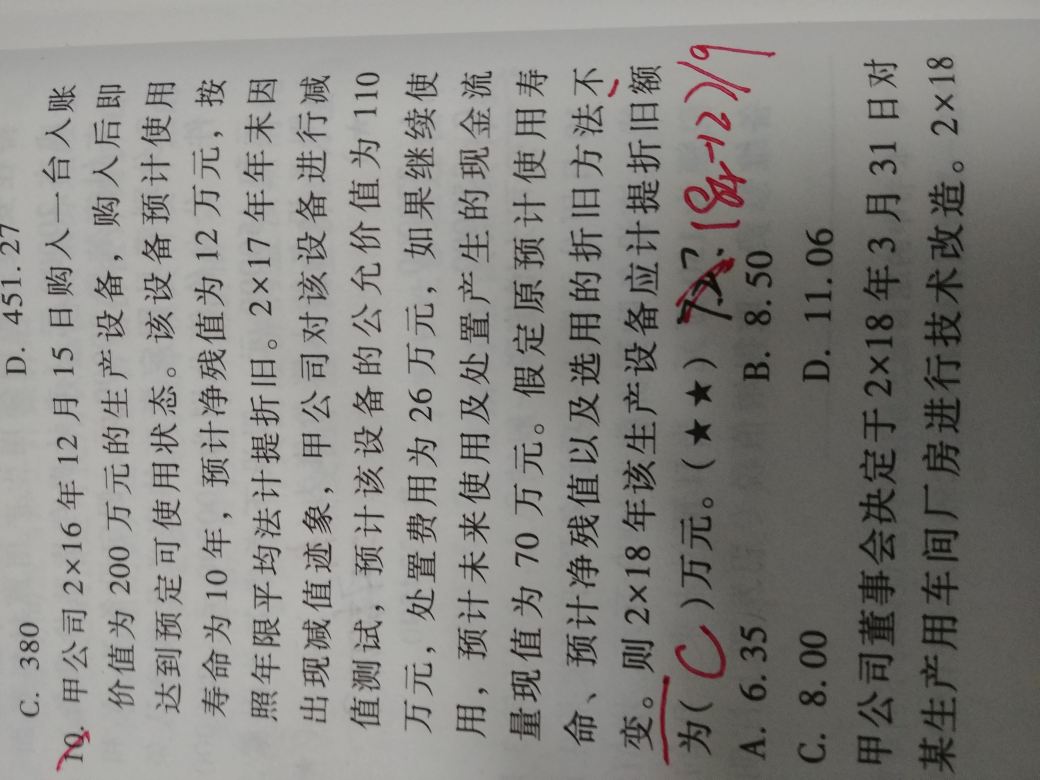 C. 380 D. 451.27
10. 甲公司 2×16 年 12 月 15 日购入一台入账
价值为 200 万元的生产设备，购入后即
达到预定可使用状态。该设备预计使用
寿命为 10 年，预计净残值为 12 万元，按
照年限平均法计提折旧。2×17 年年末因
出现减值迹象，甲公司对该设备进行减
值测试，预计该设备的公允价值为 110
万元，处置费用为 26 万元，如果继续使
用，预计未来使用及处置产生的现金流
量现值为 70 万元。假定原预计使用寿
命、预计净残值以及选用的折旧方法不
变。则 2×18 年该生产设备应计提折旧额
为( C )万元。(★★) (84-12)/9
A. 6.35 B. 8.50
C. 8.00 D. 11.06
甲公司董事会决定于 2×18 年 3 月 31 日对
某生产用车间厂房进行技术改造。2×18